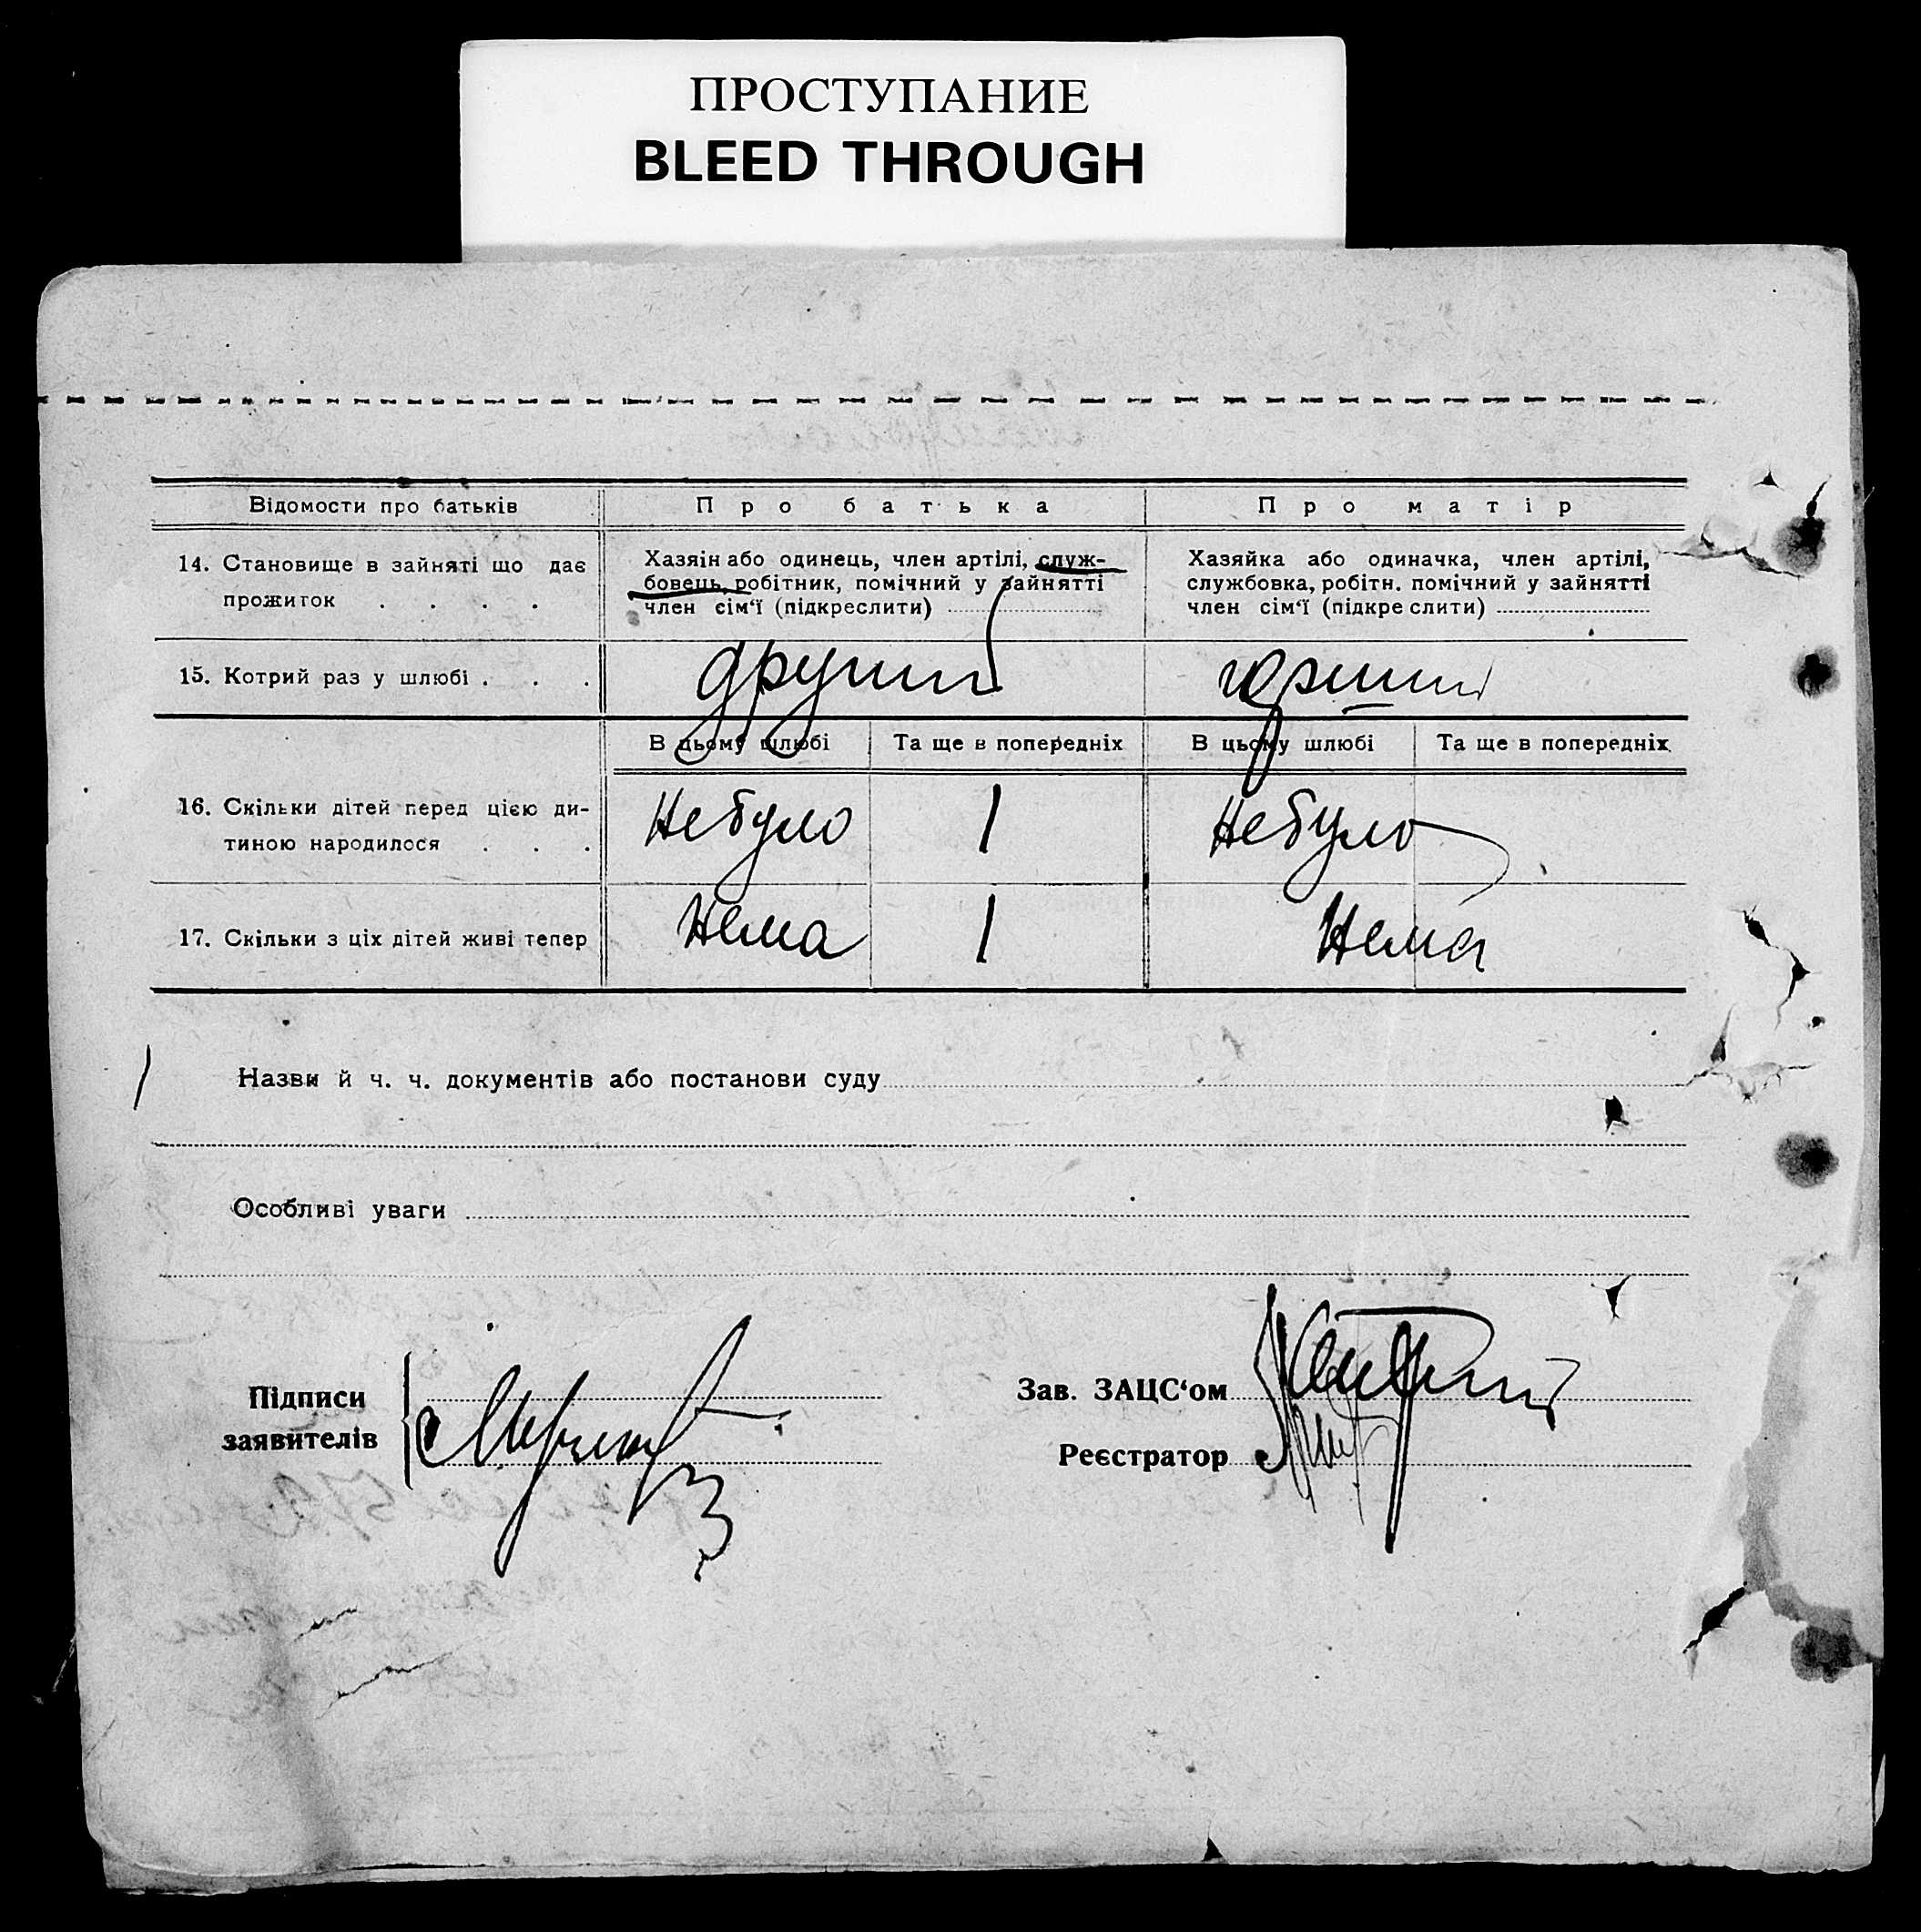 ПРОСТУПАНИЕ
BLEED THROUGH
Відомости про батьків
Про батька
Про матір
14. Становище в зайняті що дає
прожиток . . . .
Хазяін або одинець, член артілі, служ-
бовець, робітник, помічний у зайнятті
член сім‘ї (підкреслити)
Хазяйка або одиначка, член артілі,
службовка, робітн. помічний у зайнятті
член сім‘ї (підкреслити)
15. Котрий раз у шлюбі . . .
другий
В цьому шлюбі
Та ще в попередніх
В цьому шлюбі
Та ще в попередніх
16. Скільки дітей перед цією ди-
тиною народилося . . .
Небуло
1
Небуло
17. Скільки з ціх дітей живі тепер
Нема
1
Нема
Назви й ч. ч. документів або постанови суду
Особливі уваги
Підписи
заявителів
Зав. ЗАЦС‘ом
Реєстратор